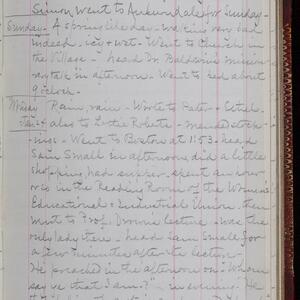 Simon went to Auburndale for Sunday.
Sunday. A spring like day - walking very bad
indeed, icy & wet. Went to Church in
the Village - heard Dr Baldwin
in afternoon. Went to bed about
9 o'clock.
Rain, rain - Wrote to Kate &
also to Lottie Roberts - mended stock-
ings - Went to Boston at 1:53 - heard
Sam Small in afternoon, did a little
shopping, had supper, spent an hour
or so in the Reading Room of the Woman's
Educational & Industrial Union, then
went to Prof. lecture - was the
only lady there - heard Sam Small for
a few minutes after the lecture.
He preached in the afternoon on - "Whom
say ye that I am?" - in evening. He